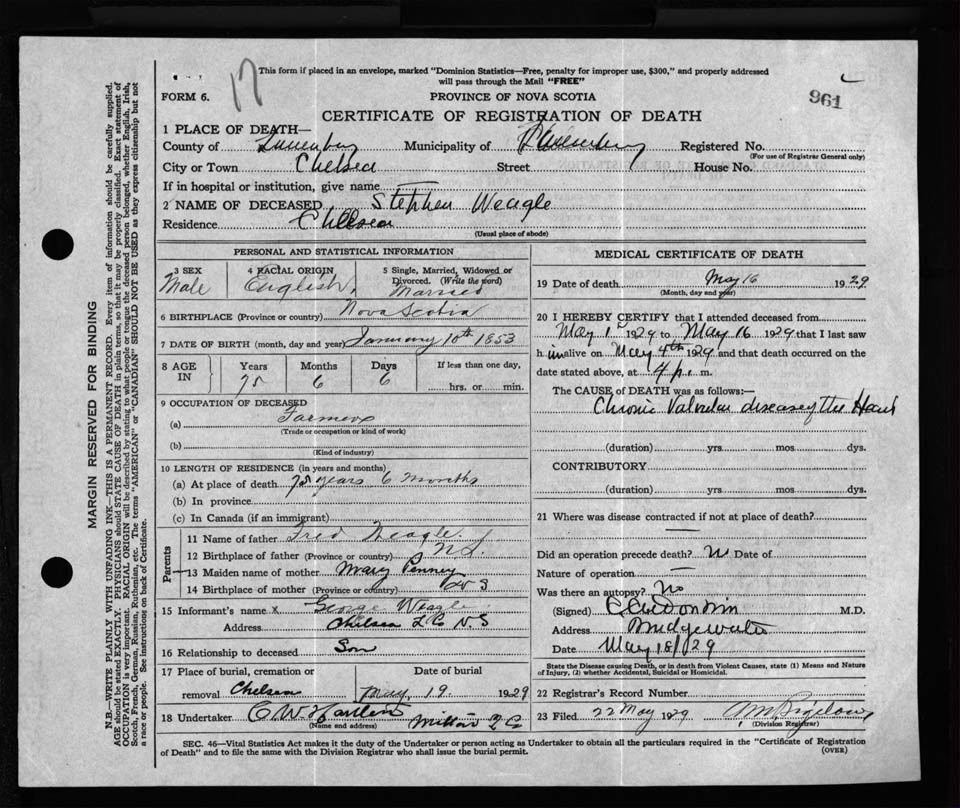 17
This form if placed in an envelope, marked "Dominion Statistics—Free, penalty for improper use, $300," and properly addressed
will pass through the Mail "FREE"
FORM 6.
PROVINCE OF NOVA SCOTIA
961
CERTIFICATE OF REGISTRATION OF DEATH
1 PLACE OF DEATH—
County of Lunenburg Municipality of Registered No.
(For use of Registrar General only)
City or Town Chelsea Street House No.
If in hospital or institution, give name
2 NAME OF DECEASED Stephen Weagle
Residence Chelsea
(Usual place of abode)
PERSONAL AND STATISTICAL INFORMATION
3 SEX 4 RACIAL ORIGIN 5 Single, Married, Widowed or
Divorced. (Write the word)
Male English Married
6 BIRTHPLACE (Province or country) Nova Scotia
7 DATE OF BIRTH (month, day and year) January 10th 1853
8 AGE IN Years Months Days If less than one day,
75 6 6 hrs. or min.
9 OCCUPATION OF DECEASED
(a) Farmer
(Trade or occupation or kind of work)
(b)
(Kind of industry)
10 LENGTH OF RESIDENCE (in years and months)
(a) At place of death 75 years 6 months
(b) In province
(c) In Canada (if an immigrant)
Parents
11 Name of father Fred Weagle
12 Birthplace of father (Province or country) N.S.
13 Maiden name of mother Mary Penney
14 Birthplace of mother (Province or country) N S
15 Informant's name x George Weagle
Address Chelsea L Co N S
16 Relationship to deceased Son
17 Place of burial, cremation or Date of burial
removal Chelsea May 19. 1929
18 Undertaker C W
(Name and address)
MEDICAL CERTIFICATE OF DEATH
19 Date of death May 16 1929
(Month, day and year)
20 I HEREBY CERTIFY that I attended deceased from
May 1st 1929 to May 16 1929 that I last saw
him alive on May 4th 1929 and that death occurred on the
date stated above, at 4 p. m.
The CAUSE OF DEATH was as follows:—
Chronic Valvular disease of the Heart
(duration) yrs. mos. dys.
CONTRIBUTORY
(duration) yrs. mos. dys.
21 Where was disease contracted if not at place of death?
Did an operation precede death? No Date of
Nature of operation
Was there an autopsy? No
(Signed) M.D.
Address Bridgewater
Date May 18/29
State the Disease causing Death, or in death from Violent Causes, state (1) Means and Nature
of Injury, (2) whether Accidental, Suicidal or Homicidal.
22 Registrar's Record Number
23 Filed 22 May 1929
(Division Registrar)
SEC. 46—Vital Statistics Act makes it the duty of the Undertaker or person acting as Undertaker to obtain all the particulars required in the "Certificate of Registration
of Death" and to file the same with the Division Registrar who shall issue the burial permit.
(OVER)
MARGIN RESERVED FOR BINDING
N.B.—WRITE PLAINLY WITH UNFADING INK—THIS IS A PERMANENT RECORD. Every item of information should be carefully supplied.
AGE should be stated EXACTLY. PHYSICIANS should STATE CAUSE OF DEATH in plain terms, so that it may be properly classified. Exact statement of
OCCUPATION is very important. RACIAL ORIGIN will be described by stating to what people or tongue the deceased person belonged, whether English, Irish,
Scotch, French, German, Russian, Ruthenian, etc. The terms "AMERICAN" or "CANADIAN" SHOULD NOT BE USED as they express citizenship but not
a race or people. See instructions on back of Certificate.